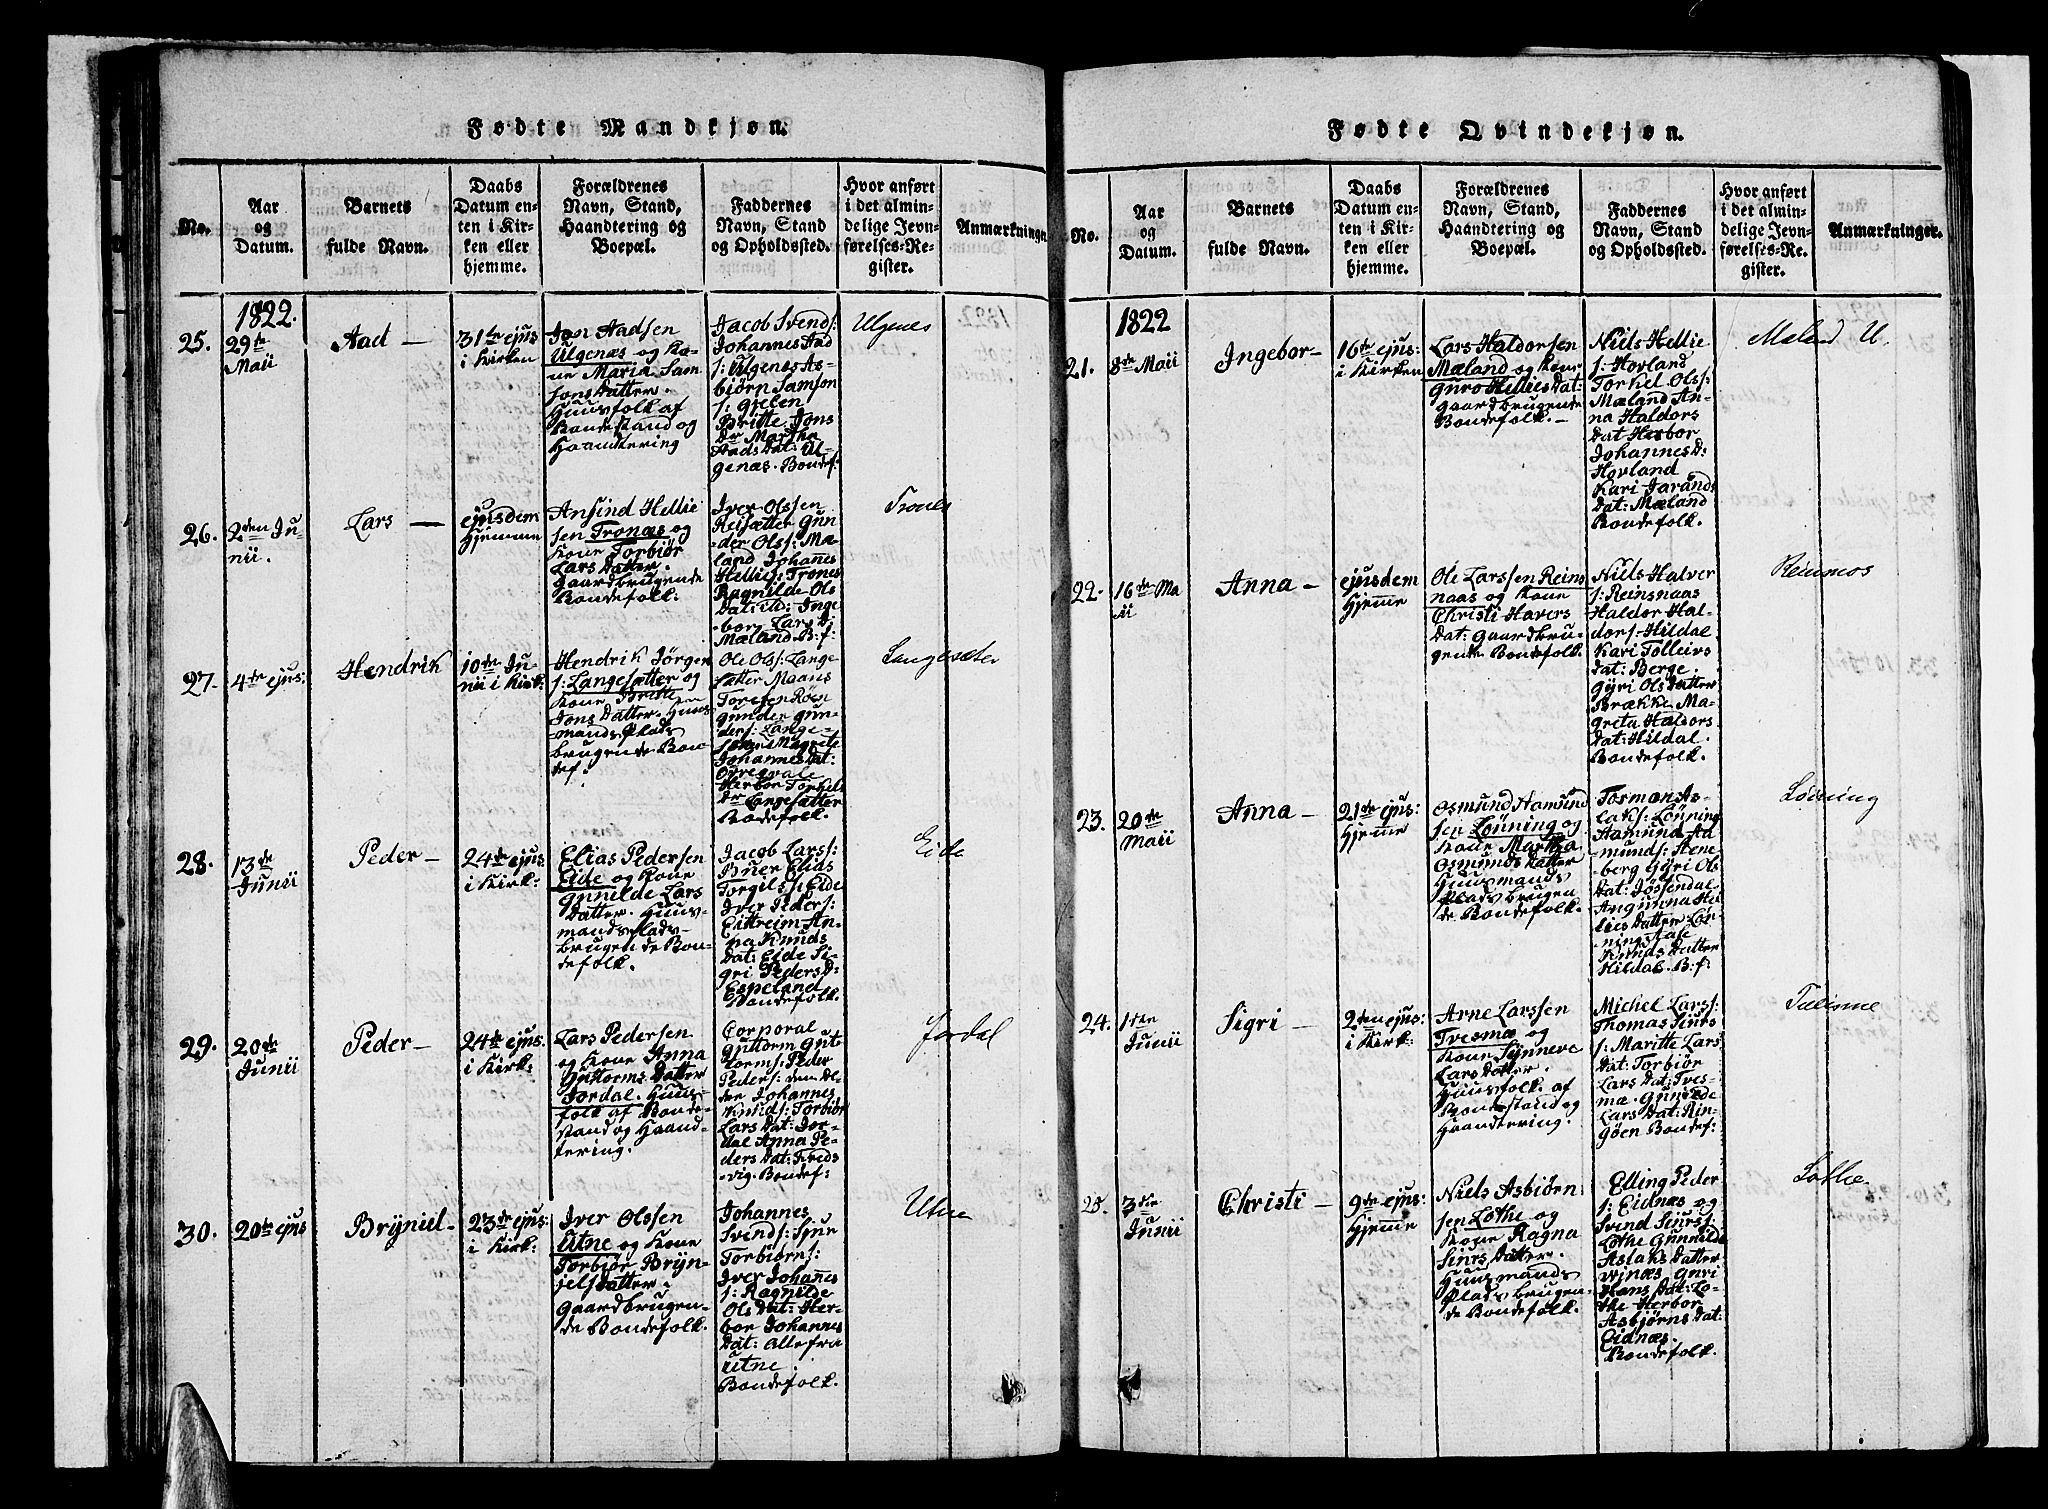 Fødte Mandkjøn.
No.
Aar
og
Datum.
Barnets
fulde Navn.
Daabs
Datum en-
ten i Kir-
ken eller
hjemme.
Forældrenes
Navn, Stand,
Haandtering og
Boepæl.
Faddernes
Navn, Stand
og Opholdssted.
Hvor anført
i det almin-
delige Jevn-
førelses-Re-
gister.
Anmærkninger
1822.
25.
29te
Maii
Aad —
31te ejus
i Kirken
Jon Aadsen
Ulgenæs og Ko-
ne Maria Sam-
sons Datter.
Huusfolk af
Bondestand og
Haandtering
Jacob Svends:
Johannes Aad
s: Ulgenæs As-
biörn Samson
s: Gjelen
Britte Jons
Dr Martha
Aads Dat: Ul-
genæs. Bondef:
Ulgenes
26.
2den Ju-
nii.
Lars —
ejusdem
Hjemme
Amsind Hellie
sen Tronæs og
Kone Torbiör
Lars Datter.
Gaardbrugende
Bondefolk:
Iver Olssen
Reisæter Gun
der Olss: Mæ-
land Johannes
Hellies: Trones
Ragnilde Ols
Dat: ib: Inge
bor Lars D:
Mæland B: f:
Trones
27.
4de ejus:
Hendrik
10de Ju-
nii i Kirk:
Hendrik Jörgen
s: Langesætter og
Kone Britte
Jons Datter. Huus
mands Plads
brugende Bon
def:
Ole Ols: Lange
sætter Maans
Toresen Röen
Gunder Gun-
ders: Lange-
sæter Magrete
Johannes Dat:
Öyregvale
Herbor Torkels
Dr Langesætter
Bondefolk.
Langesæter
28.
13de
Junii
Peder —
24de ejus
i Kirk:
Elias Pedersen
Eide og Kone
Gunilde Lars
Datter. Huus-
mandsplads-
brugende Bon-
defolk.
Jacob Larss:
Buer Elias
Torgils s: Eide
Iver Peders:
Eittreim An-
na Knuds
Dat: Eide Si-
gri Peders D:
Espeland
Bondefolk.
Eide
29.
20de
Junii
Peder —
24de ejus.
i Kirk:
Lars Pedersen
og Kone Anna
Guttorms Datter
Jordal. Huus-
folk af Bonde-
stand og Haand-
tering.
Corporal
Guttorm Gut-
torms: Peder
Peders: den El-
dre Johannes
Knuds: Torbiör
Lars Dat: Jor-
dal Anna Pe-
ders Dat: Freds
vig. Bondef:
Jordal
30.
20de ejus
Bryniel —
23de ejus:
i Kirk:
Iver Olssen
Utne og Kone
Torbiör Bryn-
jels Datter.
Gaardbrugen-
de Bondefolk.
Johannes
Svends: Sjur
Torbiörns:
Iver Johannes
s: Ragnilde
Ols Dat: Her-
bor Johannes
Dat: Alle fra
Utne.
Bondefolk.
Utne
Fødte Qvindekjøn.
No.
Aar
og
Datum.
Barnets
fulde Navn.
Daabs
Datum en-
ten i Kir-
ken eller
hjemme.
Forældrenes
Navn, Stand,
Haandtering og
Boepæl.
Faddernes
Navn, Stand
og Opholdssted.
Hvor anført
i det almin-
delige Jevn-
førelses-Re-
gister.
Anmærkninger.
1822
21.
8de Maii
Ingebor —
16te ejus:
i Kirken
Lars Haldorsen
Mæland og Kone
Guro Hellies Dat:
Gaardbrugende
Bondefolk. —
Niels Hellie
s: Hovland
Torkel Ols:
Mæland An-
na Haldors
Dat Herbor
Johannes D:
Hovland
Kari Jarands
Dat: Mæland
Bondefolk.
Meland U.
22.
16de Ma
ii
Anna —
ejusdem
Hjemme
Ole Larssen Reins
naas og Kone
Christi Havers
Dat: Gaardbru-
gende Bondefolk.
Niels Halver
s: Reinsnaas
Haldor Hal-
dors: Hildal
Kari Tolleivs
Dat: Berge.
Gyri Ols Datter
Brække Ma-
greta Haldors
Dat: Hildal.
Bondefolk.
23.
20de
Maii
Anna —
21de ejus:
Hjemme
Osmund Aamund
sen Lönning og
Kone Martha
Osmunds Datter
Huusmands
Plads brugen
de Bondefolk.
Tormon As-
laks: Lönning
Aamund Aa
munds: Hene
berg Gyri Ols
Dat: Jössendal
Angunna Hel
lies Datter Lön-
ning Aase
Knuds Datter
Hildal. B: f:
Lönning
24.
1ste
Junii
Sigri —
2den ejus:
i Kirk:
Arne Larssen
Tvesmæ og
Kone Synneve
Lars Datter.
Huusfolk af
Bondestand og
Haandtering.
Michel Lars:
Thomas Siurs
s: Maritte Lars
Dat: Torbiör
Lars Dat: Tves-
mæ. Gunilde
Lars Dat: Rin-
göen Bondef:
25.
3die
Junii
Christi —
9de ejus:
Hjemme
Niels Asbiörn
sen Lothe og
Kone Ragna
Siurs Datter.
Huusmands
Plads brugen
de Bondefolk.
Elling Peder
s: Eidnæs og
Svend Siurs:
Lothe Gunnilde
Aslaks Datter
Vinæs Guri
Hans Dat: Lo-
the Herbor
Asbjörns Dat:
Eidnæs.
Bondefolk.
Lothe